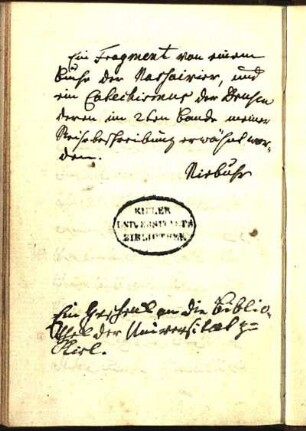 Ein Fragment von einem
Buche der Nassairier, und
ein Catechismus der Drusen
deren im 2ten Bande meiner
Reisebeschreibung erwähnt wor-
den.
Niebuhr
KIELER
UNIVERSITÆTS
BIBLIOTHEK
Ein Geschenk an die Biblio
thek der Universität zu
Kiel.